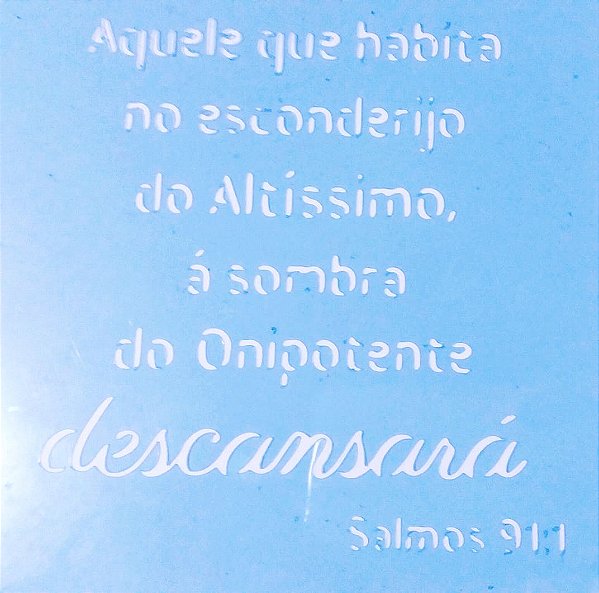 Aquele que habita
no esconderijo
do Altíssimo,
á sombra
do Onipotente
descansará
Salmos 91:1